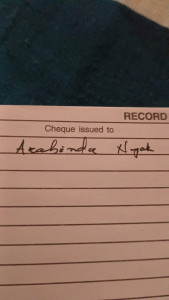 RECORD
Cheque issued to
Arabinda Nayak